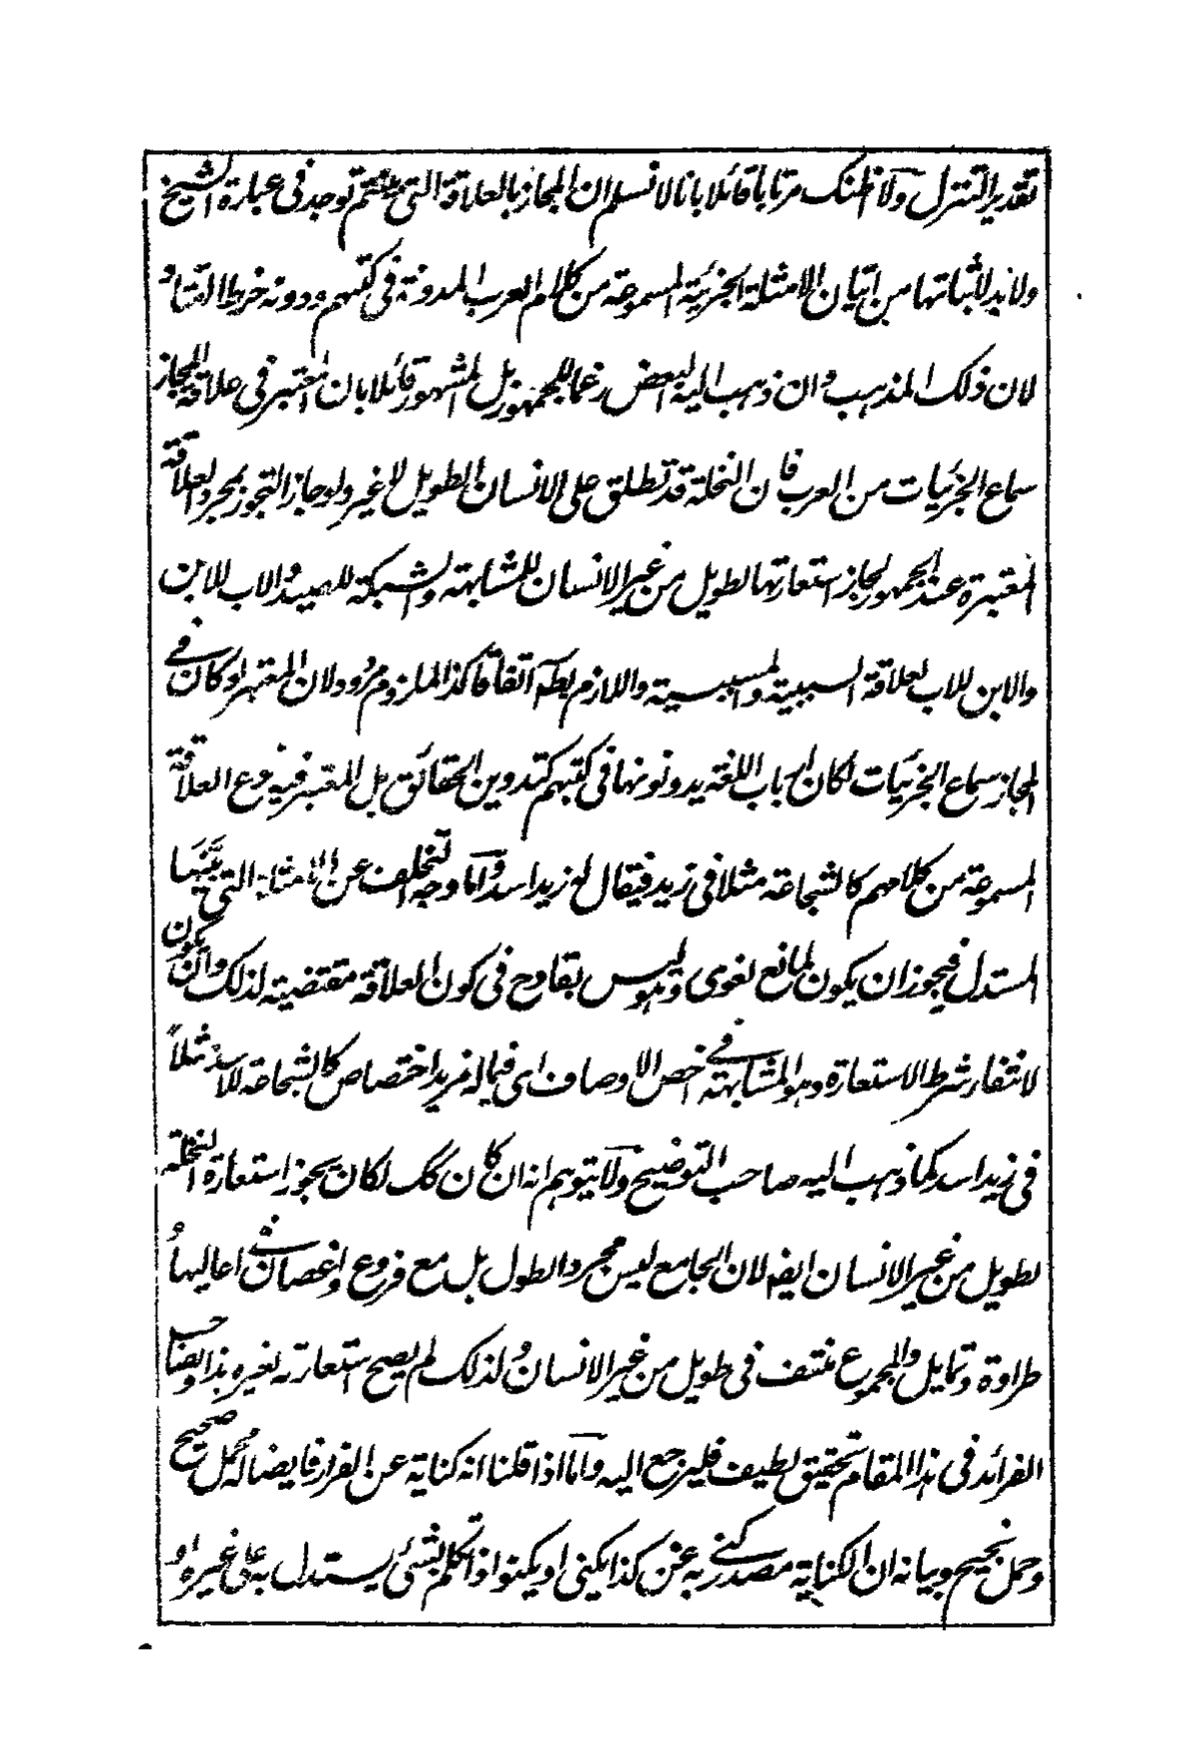 تقدير التنزل ولا اظنك مرتابا قائلا بانا لا نسلم ان المجاز بالعلاقة التى قلتم توجد فى عبارة الشيخ
ولا بد لاثباتها من اتيان الامثلة الجزئية المسموعة من كلام العرب المدونة فى كتبهم ودونه خرط القتاد
لان ذلك المذهب وان ذهب اليه البعض رغما للجمهور بل المشهور قائلا بان المعتبر فى علاقة المجاز
سماع الجزئيات من العرب فان النخلة قد تطلق على الانسان الطويل لا غير ولو جاز التجوز بمجرد العلاقة
المعتبرة عند الجمهور لجاز استعارتها لطويل من غير الانسان للمشابهة والشبكة للصيد والاب للابن
والابن للاب لعلاقة السببية والمسببية واللازم بط اتفاقا فكذا الملزوم مردود لان المعتبر لو كان فى
المجاز سماع الجزئيات لكان ارباب اللغة يدونونها فى كتبهم كتدوين الحقائق بل المعتبر فيه نوع العلاقة
المسموعة من كلامهم كالشجاعة مثلا فى زيد فيقال له زيد اسد واما وجه التخلف عن الامثلة التى بينها
المستدل فيجوز ان يكون لمانع لغوى وهو ليس بقادح فى كون العلاقة مقتضية لذلك وان يكون
لانتفاء شرط الاستعارة وهو المشابهة فى اخص الاوصاف اى فيما له مزيد اختصاص كالشجاعة للاسد مثلا
فى زيد اسد كما ذهب اليه صاحب التوضيح ولا يتوهم انه ان كان كك لكان يجوز استعارة النخلة
لطويل من غير الانسان ايضه لان الجامع ليس مجرد الطول بل مع فروع واغصان فى اعاليها و
طراوة وتمايل والمجموع منتف فى طويل من غير الانسان ولذلك لم يصح استعارته لغيره هذا ولصاحب
الفرائد فى هذا المقام تحقيق لطيف فليرجع اليه واما اذا قلنا انه كناية عن الفرار فايضا له محمل صحيح
وحمل نجيح وبيانه ان الكناية مصدر كنى به عن كذا يكنى او يكنو اذا تكلم بشئ يستدل به على غيره او